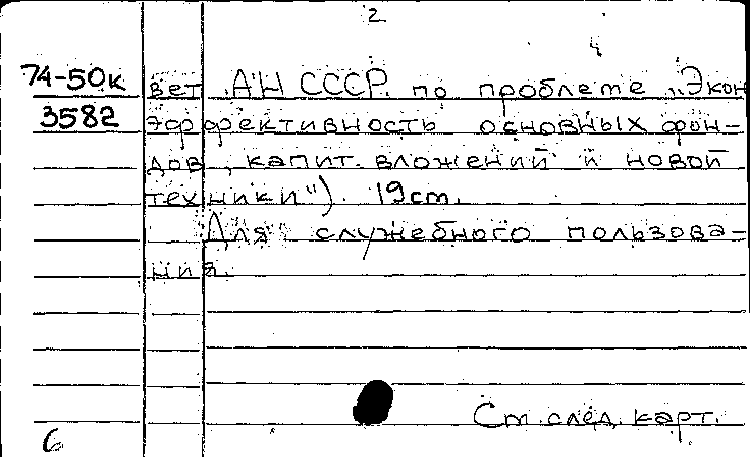 2
4
74-50к вет АН СССР по пробле­ме „Экон
3582 эффективность основных фон-
дов, капит. вложений и новой
техники"). 19 cm.
Для служебного пользова-
ния.
См. след. карт.
6